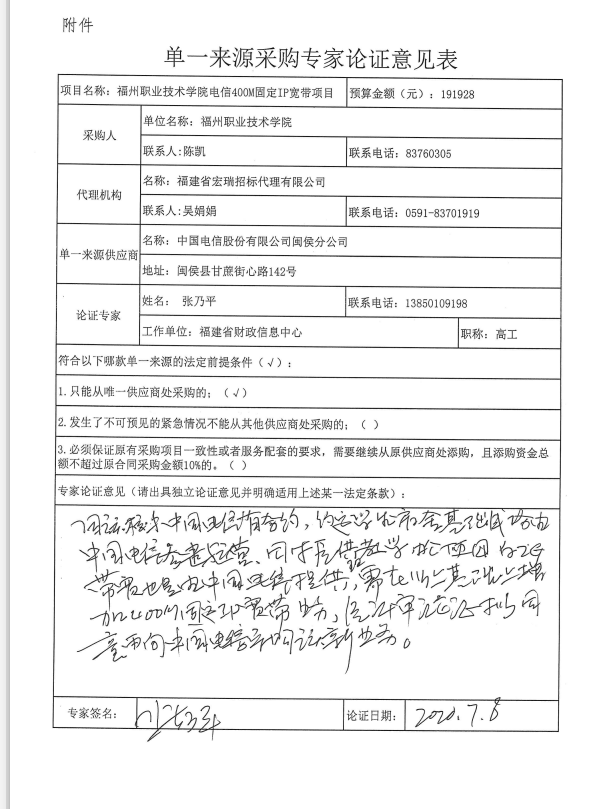 附件
单一来源采购专家论证意见表
项目名称：福州职业技术学院电信400M固定IP宽带项目 预算金额（元）：191928
采购人
单位名称：福州职业技术学院
联系人:陈凯 联系电话：83760305
代理机构
名称：福建省宏瑞招标代理有限公司
联系人:吴娟娟 联系电话：0591-83701919
单一来源供应商
名称：中国电信股份有限公司闽侯分公司
地址：闽侯县甘蔗街心路142号
论证专家
姓名： 张乃平 联系电话：13850109198
工作单位：福建省财政信息中心 职称：高工
符合以下哪款单一来源的法定前提条件（√）：
1.只能从唯一供应商处采购的；（√）
2.发生了不可预见的紧急情况不能从其他供应商处采购的；（ ）
3.必须保证原有采购项目一致性或者服务配套的要求，需要继续从原供应商处添购，且添购资金总
额不超过原合同采购金额10%的。（ ）
专家论证意见（请出具独立论证意见并明确适用上述某一法定条款）：
因该校与中国电信有合约，约定学
中国电信 运营、同时提供教学
带宽也是由中国电信提供，需在以上基础上增
加400M固定IP宽带业务，经评审论证拟同
意 向中国电信采购该新业务。
专家签名： 论证日期： 2020.7.8